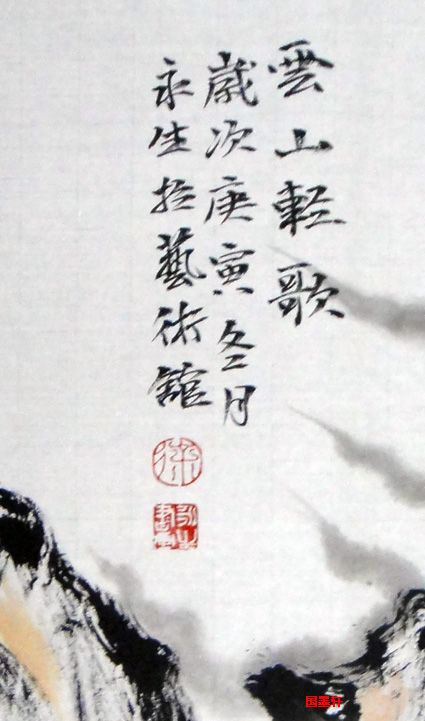 雲山輕歌
歲次庚寅冬月
永生於藝術館
国墨轩